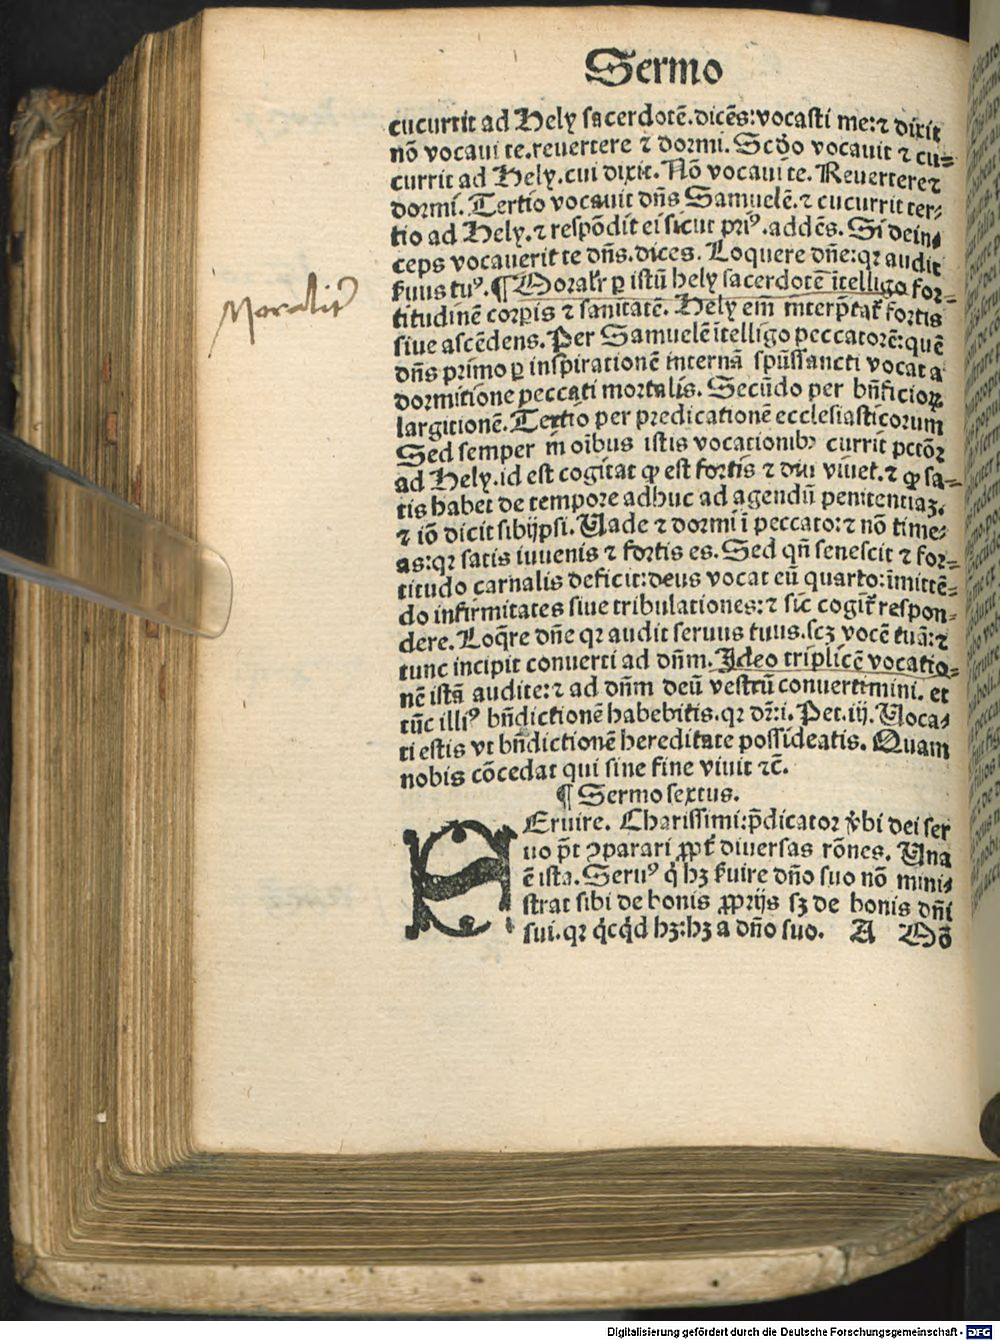 Sermo
cucurrit ad Hely sacerdotē.dicēs:vocasti me:⁊ dixit
nō vocaui te.reuertere ⁊ dormi. Scd̓o vocauit ⁊ cu⸗
currit ad Hely.cui dixit. Nō vocaui te. Reuertere⁊
dormi. Tertio vocauit dn̄s Samuelē.⁊ cucurrit ter⸗
tio ad Hely.⁊ respōdit ei sicut priꝰ.addēs. Si dein⸗
ceps vocauerit te dn̄s.dices. Loquere dn̄e:qꝛ audit
ẜuus tuꝰ.¶Moralr̓ ꝑ istū hely sacerdotē ītelligo for⸗
titudinē corꝑis ⁊ sanitatē. Hely em̄ interp̄tat᷑ fortis
siue ascēdens. Per Samuelē ītelligo peccatorē:quē
dn̄s primo ꝑ inspirationē internā spūssancti vocat a
dormitione peccati mortalis. Secūdo per bn̄ficioꝝ
largitionē. Tertio per predicationē ecclesiasticorum
Sed semper in oībus istis vocationibꝰ currit pctōꝛ
ad Hely.id est cogitat ꝙ est fortis ⁊ diu viuet.⁊ ꝙ sa⸗
tis habet de tempore adhuc ad agendū penitentiaꝫ.
⁊ iō dicit sibijpsi. Uade ⁊ dormi ī peccato:⁊ nō time⸗
as:qꝛ satis iuuenis ⁊ fortis es. Sed qn̄ senescit ⁊ for⸗
titudo carnalis deficit:deus vocat eū quarto:īmittē⸗
do infirmitates siue tribulationes:⁊ sic cogit᷑ respon⸗
dere. Loq̄re dn̄e qꝛ audit seruus tuus.scꝫ vocē tuā:⁊
tunc incipit conuerti ad dn̄m. Ideo triplicē vocatio⸗
nē istā audite:⁊ ad dn̄m deū vestrū conuertimini. et
tūc illiꝰ bn̄dictionē habebitis.qꝛ dr̄:i. Pet.iij. Uoca⸗
ti estis vt bn̄dictionē hereditate possideatis. Quam
nobis cōcedat qui sine fine viuit ⁊c̄.
¶ Sermo sextus.
SEruire. Charissimi:p̄dicator v̓bi dei ser
uo p̄t ꝯparari ꝓpt᷑ diuersas rōnes. Una
ē ista. Seruꝰ q̇ hꝫ ẜuire dn̄o suo nō mini⸗
strat sibi de bonis ꝓprijs sꝫ de bonis dn̄i
sui.qꝛ q̇cq̇d hꝫ:hꝫ a dn̄o suo. A Mō
Moralit᷑
Digitalisierung gefördert durch die Deutsche Forschungsgemeinschaft - DFG